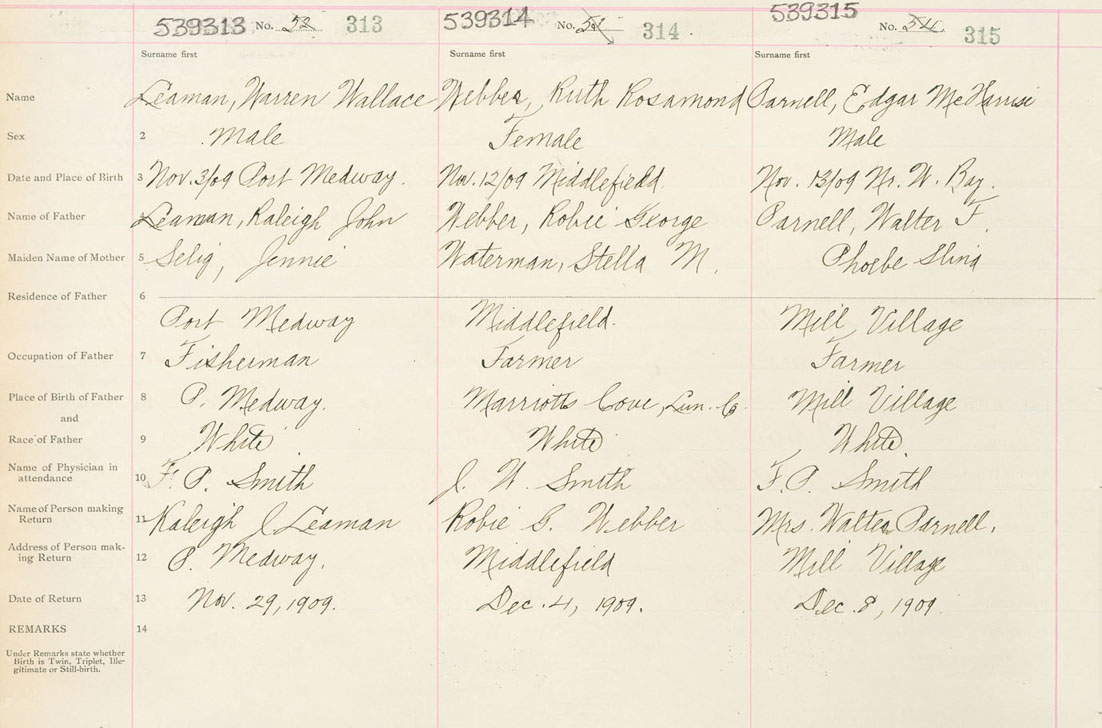 539313 No. 52 313 539314 No. 314 539315 No. 54 315
Surname first Surname first Surname first
Name Leaman, Warren Wallace Webber, Ruth Rosamond Parnell, Edgar
Sex 2 Male Female Male
Date and Place of Birth 3 Nov. 3/09 Port Medway. Nov. 12/09 Middlefield. Nov. 13/09 Nr. W. Bay.
Name of Father Leaman, Raleigh John Webber, Robie George Parnell, Walter F.
Maiden Name of Mother 5 Selig, Jennie Waterman, Stella M. Phoebe
Residence of Father 6
Port Medway Middlefield. Mill Village
Occupation of Father 7 Fisherman Farmer Farmer
Place of Birth of Father 8 P. Medway. Marriotts Cove, Lun. Co Mill Village
and
Race of Father 9 White White White
Name of Physician in
attendance 10 F. P. Smith J. W. Smith F. P. Smith
Name of Person making
Return 11 Raleigh J Leaman Robie G. Webber Mrs. Walter Parnell.
Address of Person mak-
ing Return 12 P. Medway. Middlefield Mill Village
Date of Return 13 Nov. 29, 1909. Dec. 4, 1909. Dec. 8, 1909
REMARKS 14
Under Remarks state whether
Birth is Twin, Triplet, Ille-
gitimate or Still-birth.